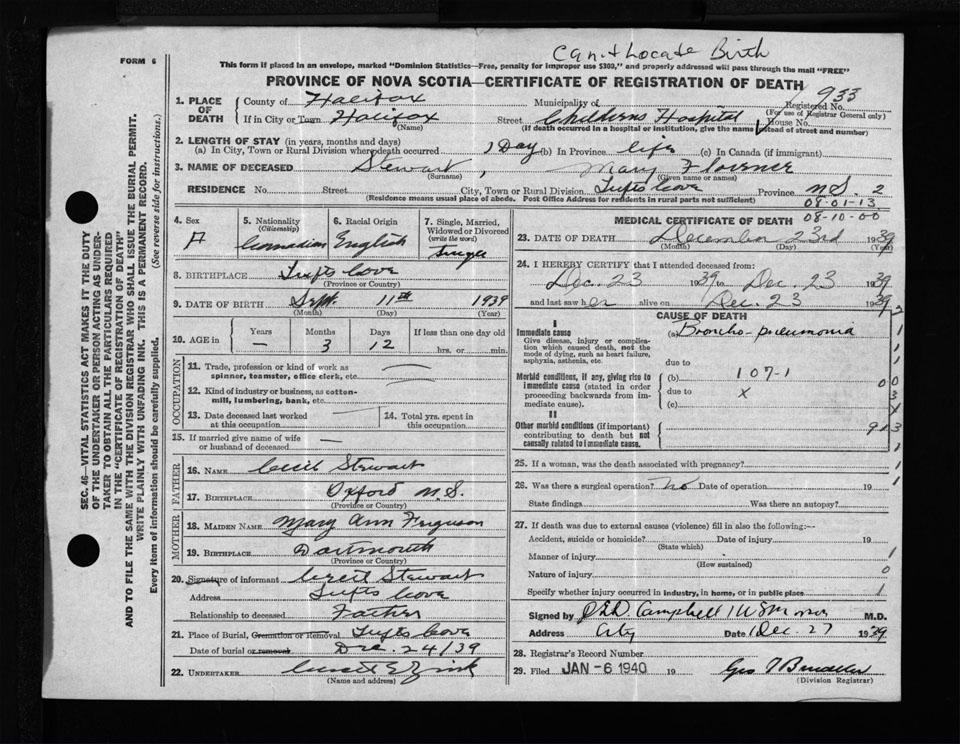 Can't Locate Birth
FORM 6
This form if placed in an envelope, marked "Dominion Statistics—Free, penalty for improper use $300," and properly addressed will pass through the mail "FREE"
PROVINCE OF NOVA SCOTIA—CERTIFICATE OF REGISTRATION OF DEATH
933
1. PLACE OF DEATH
County of Halifax Municipality of Registered No.
(For use of Registrar General only)
If in City or Town Halifax Street Childrens Hospital House No.
(Name) (If death occurred in a hospital or institution, give the name instead of street and number)
2. LENGTH OF STAY (in years, months and days)
(a) In City, Town or Rural Division where death occurred 1 Day (b) In Province life (c) In Canada (if immigrant)
3. NAME OF DECEASED Stewart, Mary
(Surname) (Given name or names)
RESIDENCE No. Street City, Town or Rural Division Tufts Cove Province N.S. 2
(Residence means usual place of abode. Post Office Address for residents in rural parts not sufficient) 08-01-13
08-10-00
4. Sex F
5. Nationality (Citizenship) Canadian
6. Racial Origin English
7. Single, Married, Widowed or Divorced (write the word) Single
8. BIRTHPLACE Tufts Cove
(Province or Country)
9. DATE OF BIRTH Sept. 11th 1939
(Month) (Day) (Year)
10. AGE in Years Months Days If less than one day old
— 3 12 hrs. or min.
OCCUPATION
11. Trade, profession or kind of work as spinner, teamster, office clerk, etc. —
12. Kind of industry or business, as cotton-mill, lumbering, bank, etc. —
13. Date deceased last worked at this occupation
14. Total yrs. spent in this occupation
15. If married give name of wife or husband of deceased —
FATHER
16. NAME Cecil Stewart
17. BIRTHPLACE Oxford N.S.
(Province or Country)
MOTHER
18. MAIDEN NAME Mary Ann Ferguson
19. BIRTHPLACE Dartmouth
(Province or Country)
20. Signature of informant Cecil Stewart
Address Tufts Cove
Relationship to deceased Father
21. Place of Burial, Cremation or Removal Tufts Cove
Date of burial or removal Dec. 24/39
22. UNDERTAKER Zink
(Name and address)
MEDICAL CERTIFICATE OF DEATH
23. DATE OF DEATH December 23rd 1939
(Month) (Day) (Year)
24. I HEREBY CERTIFY that I attended deceased from:
Dec. 23 1939 to Dec. 23 1939
and last saw her alive on Dec. 23 1939
CAUSE OF DEATH
I
Immediate cause (a) Broncho-pneumonia
Give disease, injury or complication which caused death, not the mode of dying, such as heart failure, asphyxia, asthenia, etc.
due to
Morbid conditions, if any, giving rise to immediate cause (stated in order proceeding backwards from immediate cause).
(b) 107-1
due to x
(c)
II
Other morbid conditions (if important) contributing to death but not causally related to immediate cause.
25. If a woman, was the death associated with pregnancy?
26. Was there a surgical operation? No Date of operation 19
State findings Was there an autopsy?
27. If death was due to external causes (violence) fill in also the following:—
Accident, suicide or homicide? Date of injury 19
(State which)
Manner of injury
(How sustained)
Nature of injury
Specify whether injury occurred in industry, in home, or in public place
Signed by Campbell M.D.
Address City Date Dec. 27 1939
28. Registrar's Record Number
29. Filed JAN -6 1940 19 Geo
(Division Registrar)
SEC. 46—VITAL STATISTICS ACT MAKES IT THE DUTY
OF THE UNDERTAKER OR PERSON ACTING AS UNDER-
TAKER TO OBTAIN ALL THE PARTICULARS REQUIRED
IN THE "CERTIFICATE OF REGISTRATION OF DEATH"
AND TO FILE THE SAME WITH THE DIVISION REGISTRAR WHO SHALL ISSUE THE BURIAL PERMIT.
WRITE PLAINLY WITH UNFADING INK. THIS IS A PERMANENT RECORD.
Every item of information should be carefully supplied. (See reverse side for instructions.)